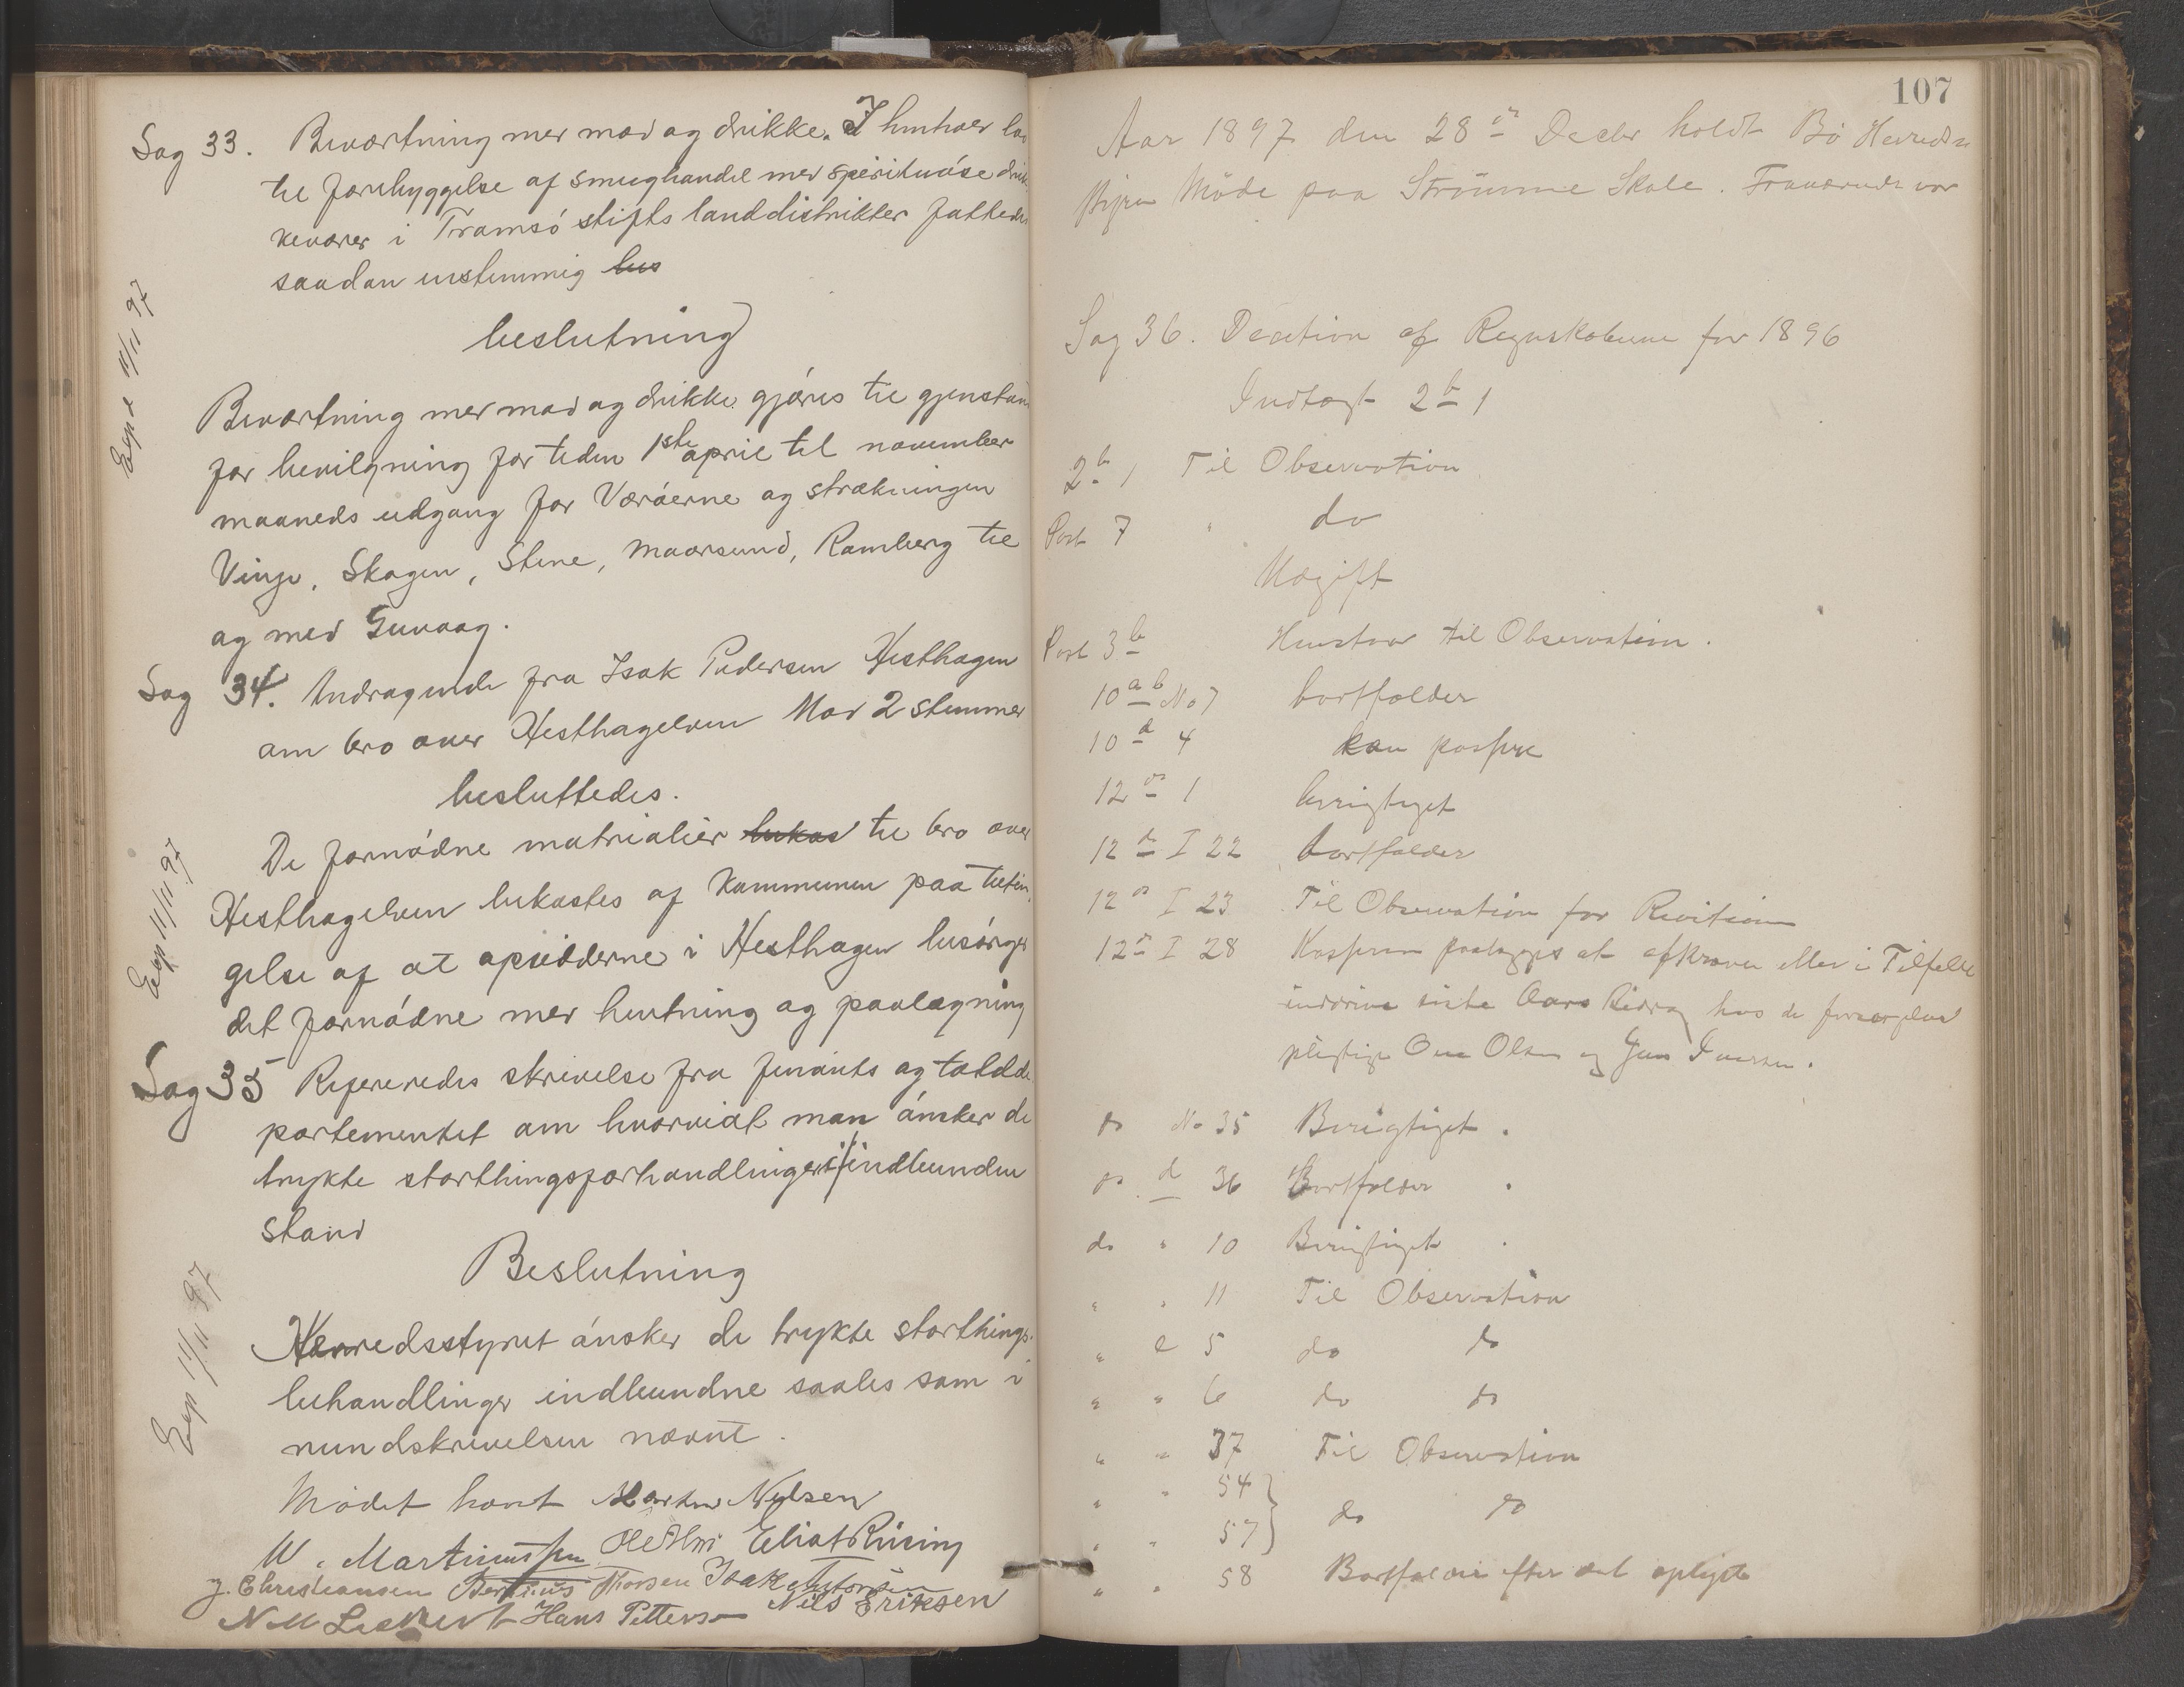 Sag 33. Beværtning mer mad og drikke. I henhold lov
til forebyggelse af smughandel med spirituøse drik-
kevarer i Tromsø stifts landdistrikter fattedes
saadan enstemmig bes
beslutning
Exp d 11/11 97
Beværtning mer mad og drikke gjøres til gjenstand
for bevilgning for tiden 1ste april til november
maaneds udgang for Værøerne og strækningen
Vinje, Skagen, Stene, Maarsund, Ramberg til
og med Guvaag.
Sag 34. Andragende fra Isak Pedersen Hesthagen
om bro over Hesthagelven Mod 2 stemmer
besluttedes.
Exp 11/11 97
De fornødne matrialier bekos til bro over
Hesthagelven bekostes af Kommunen paa betin-
gelse af at opsidderne i Hesthagen besørger
det fornødne mer hentning og paalægning
Sag 35 Refereredes skrivelse fra finants og tolddo
partementet om hvorvidt man ønsker de
trykte storthingsforhandlinger i indbunden
stand
Beslutning
Exp 11/11 97
Herredsstyret ønsker de trykte storthings-
behandlinger indbundne saales som i
rundskrivelsen nævnt.
Mødet hævt Martin Nilsen
W. Martinussen Elias Rising
J. Christiansen Bertinus Thorsen Isak
N M Hans Petterse Nils Eriksen
107
Aar 1897 den 28de Decbr holdt Bø Herreds
styre Møde paa Strømme Skole. Fraværende var
Sag 36. Decition af Regnskaberne for 1896
Indtægt 2b 1
2b 1 Til Observation
Post 7 " do
Udgift
Post 3b Henstaar til Observation.
10 a b No 7 bortfalder
10 a 4 kan passere
12 a 1 berigtiget
12 a I 22 bortfalder
12 a I 23 Til Observation for Revition
12 a I 28 Kasseren paalægges at afkræve eller i Tilfelle
inddrive siste Aars Bidrag hos de forsørgelses
pligtige Ole Olsen og Jens Iversen.
do No 35 Berigtiget.
do d 36 Bortfalder.
do " 10 Berigtiget.
" " 11 Til Observation
" e 5 do do
" " 6 do do
" " 37 Til Observation
" " 54
" " 57 } do do
" " 58 Bortfalder efter det oplyste